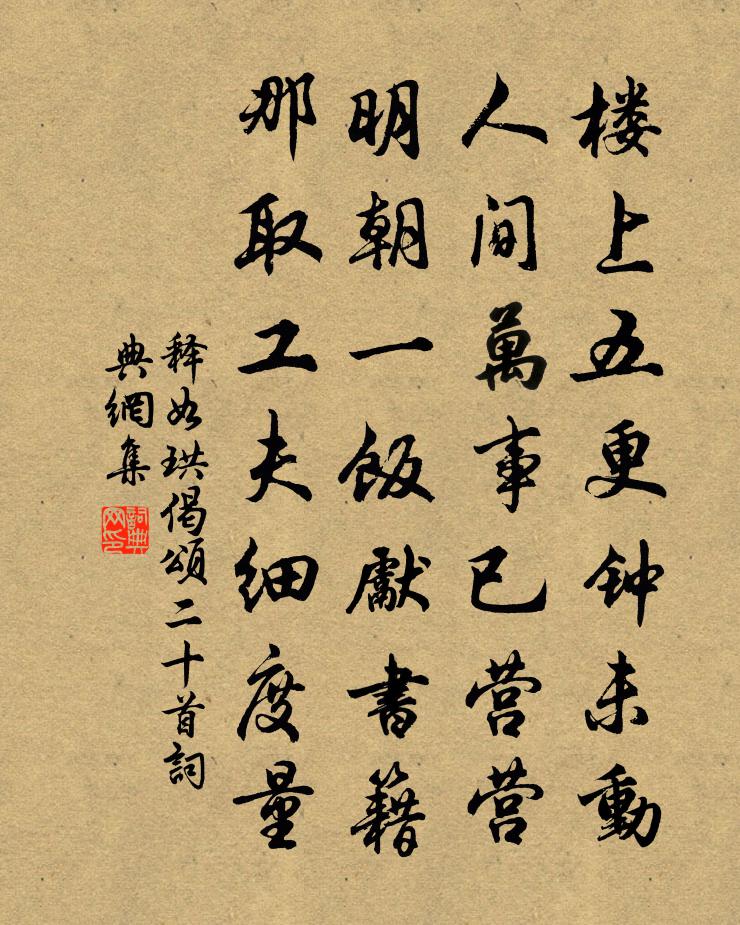 楼上五更钟未動
人间萬事已营营
明朝一飯獻書籍
那取工夫细度量
释如珙偈頌二十首詞
典網集
詞典
网印